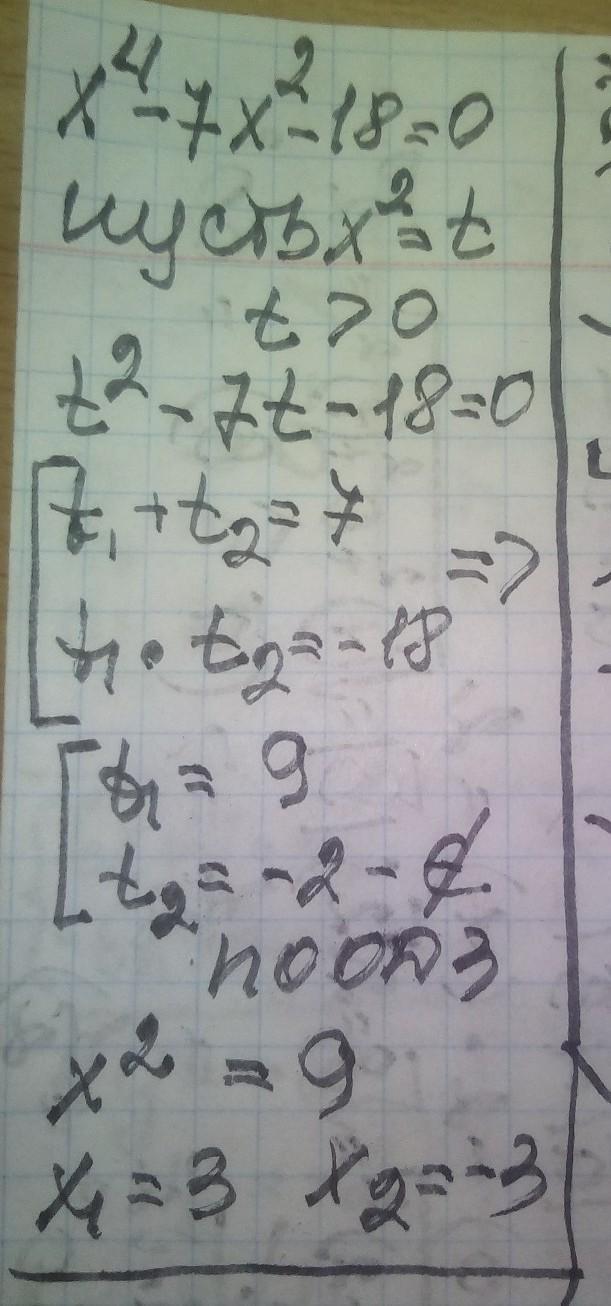 x⁴-7x²-18=0
пусть x²=t
t>0
t²-7t-18=0
[t₁+t₂=7
=>
t₁•t₂=-18
[t₁=9
t₂=-2-∉
по ОДЗ
x²=9
x₁=3 x₂=-3